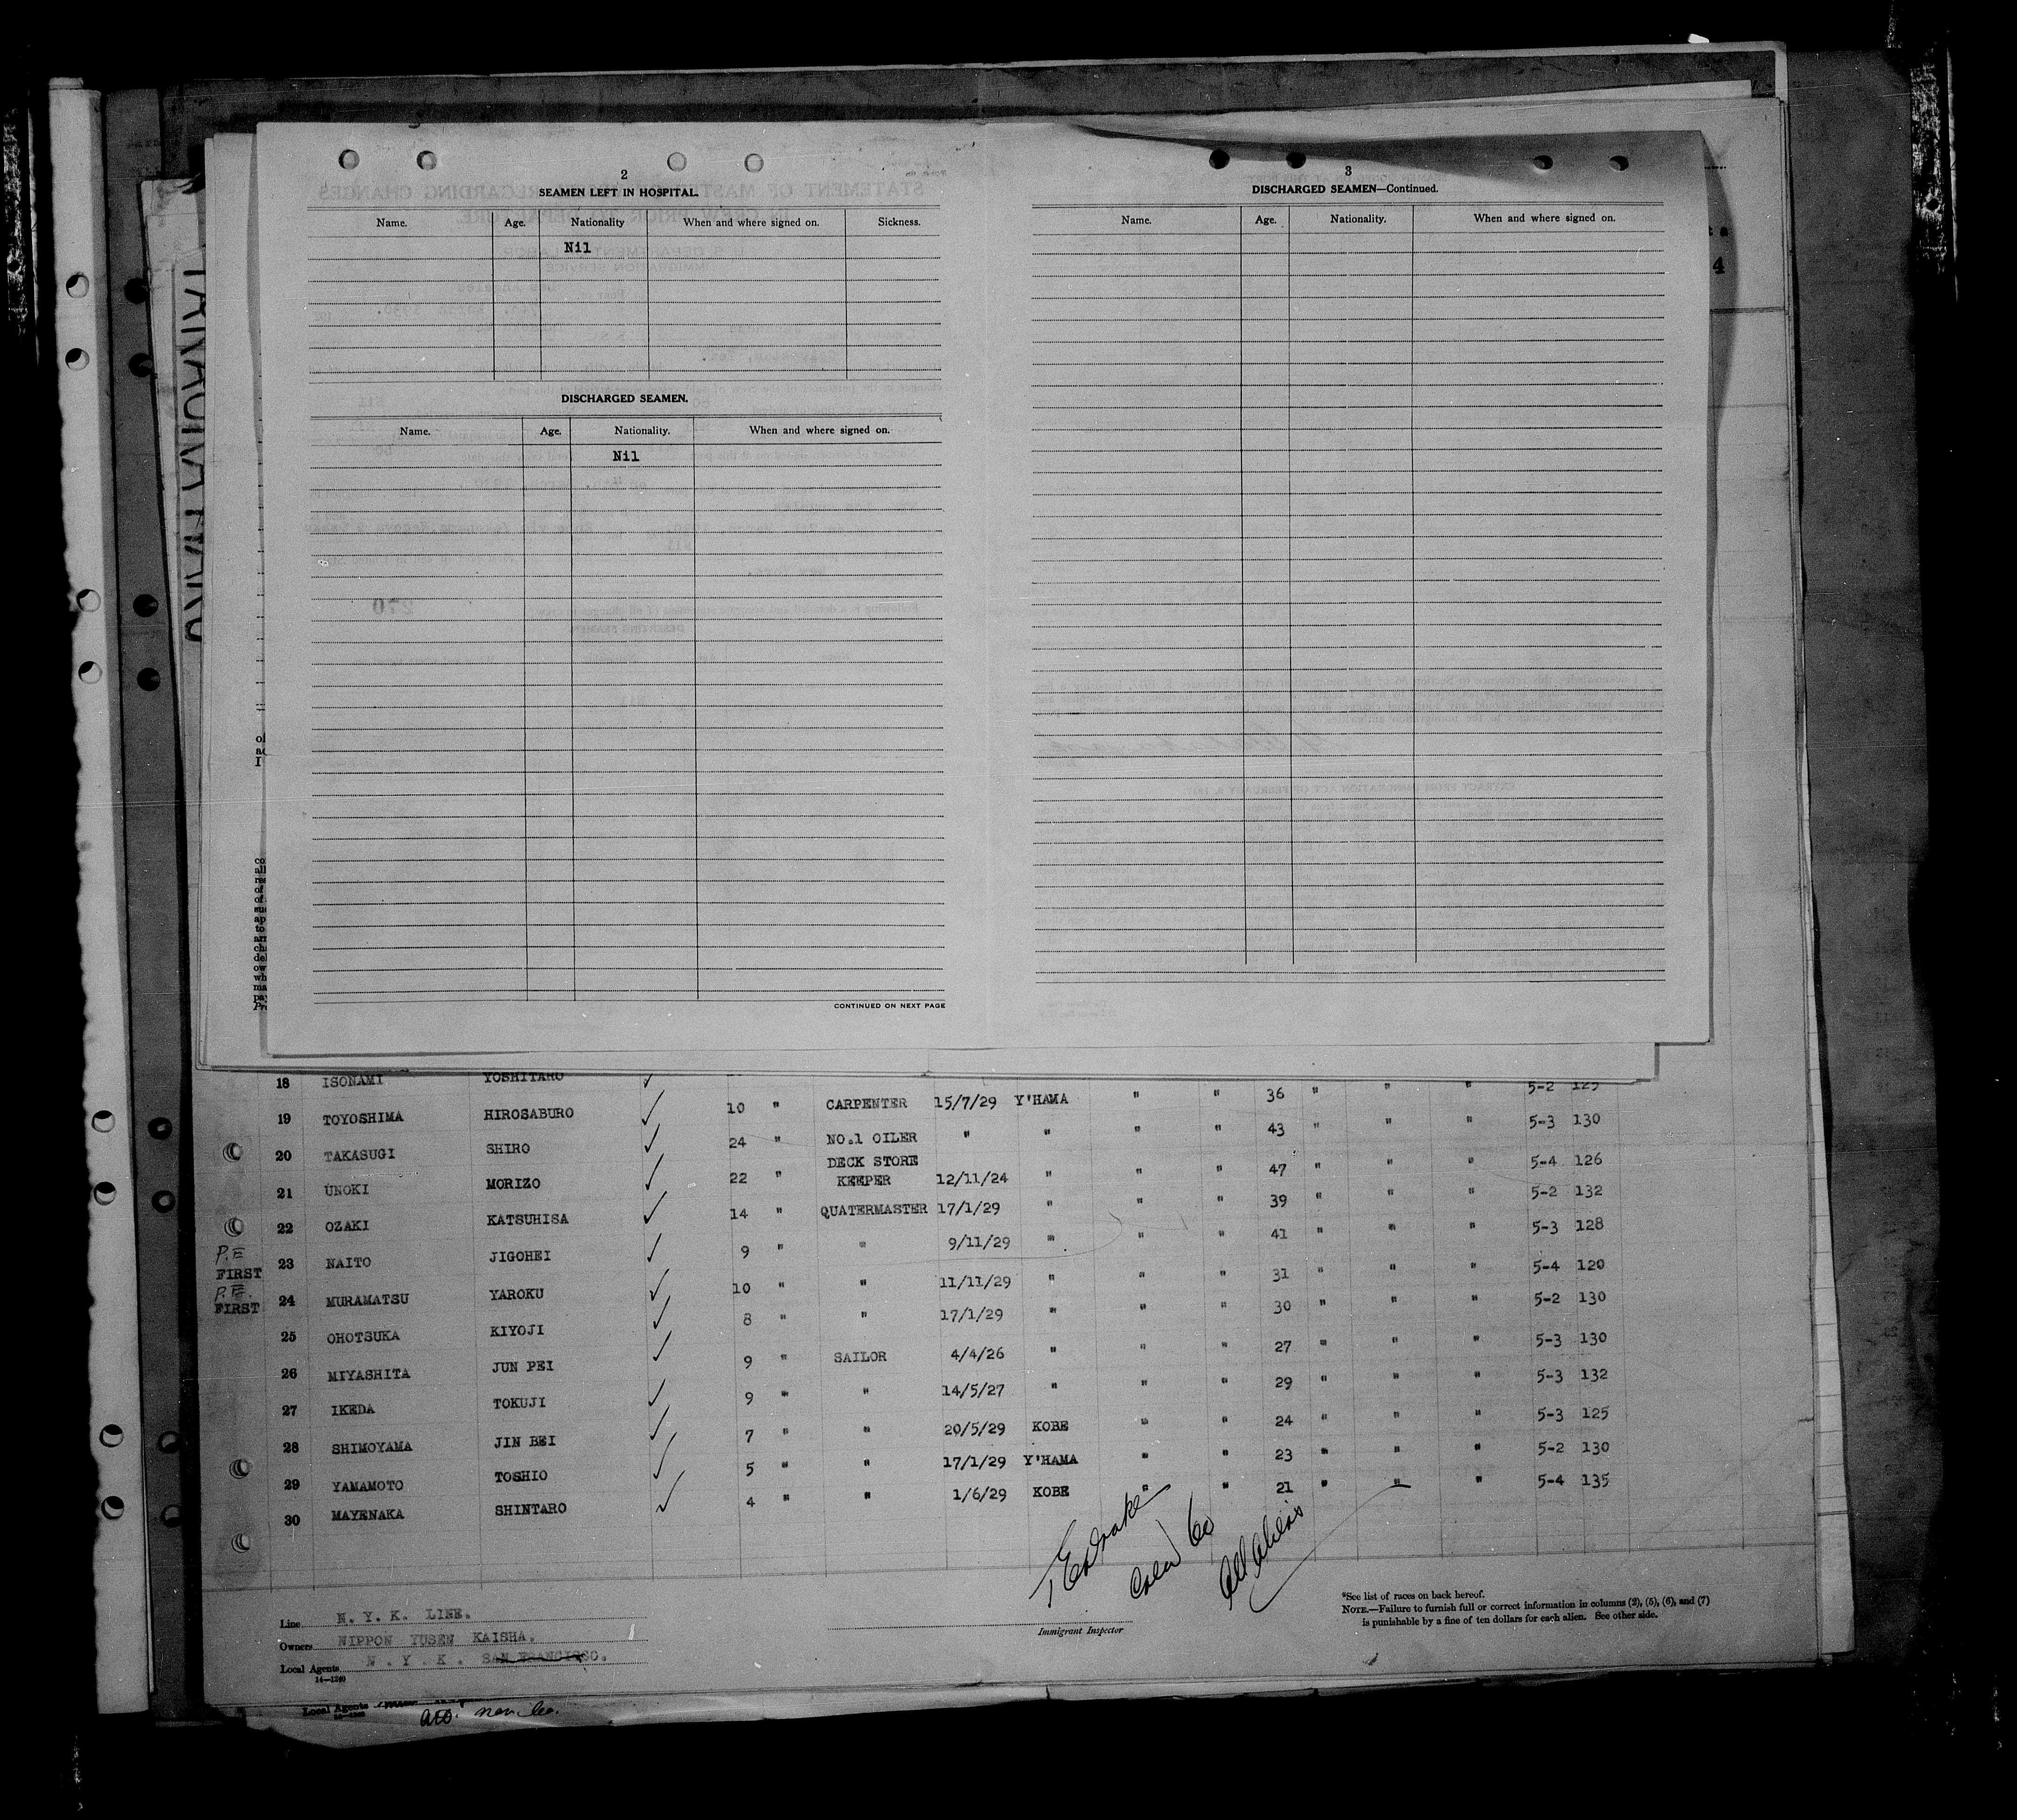 2
SEAMEN LEFT IN HOSPITAL.
Name. Age. Nationality When and where signed on. Sickness.
Nil
DISCHARGED SEAMEN.
Name. Age. Nationality. When and where signed on.
Nil
CONTINUED ON NEXT PAGE
3
DISCHARGED SEAMEN—Continued.
Name. Age. Nationality. When and where signed on.
4
18 ISONAMI YOSHITARO ✓ 36 " " " 5-2 125
19 TOYOSHIMA HIROSABURO ✓ 10 " CARPENTER 15/7/29 Y'HAMA " " 43 " " " 5-3 130
20 TAKASUGI SHIRO ✓ 24 " NO.1 OILER " " " " 47 " " " 5-4 126
21 UNOKI MORIZO ✓ 22 " DECK STORE
KEEPER 12/11/24 " " " 39 " " " 5-2 132
22 OZAKI KATSUHISA ✓ 14 " QUATERMASTER 17/1/29 " " " 41 " " " 5-3 128
P.E
FIRST 23 NAITO JIGOHEI ✓ 9 " " 9/11/29 " " " 31 " " " 5-4 120
P.E.
FIRST 24 MURAMATSU YAROKU ✓ 10 " " 11/11/29 " " " 30 " " " 5-2 130
25 OHOTSUKA KIYOJI ✓ 8 " " 17/1/29 " " " 27 " " " 5-3 130
26 MIYASHITA JUN PEI ✓ 9 " SAILOR 4/4/26 " " " 29 " " " 5-3 132
27 IKEDA TOKUJI ✓ 9 " " 14/5/27 " " " 24 " " " 5-3 125
28 SHIMOYAMA JIN BEI ✓ 7 " " 20/5/29 KOBE " " 23 " " " 5-2 130
29 YAMAMOTO TOSHIO ✓ 5 " " 17/1/29 Y'HAMA " " 21 " " " 5-4 135
30 MAYENAKA SHINTARO ✓ 4 " " 1/6/29 KOBE
All Aliens
Immigrant Inspector
Line N. Y. K. LINE.
Owners NIPPON YUSEN KAISHA.
Local Agents N. Y. K. SAN FRANCISCO.
14—1240
*See list of races on back hereof.
NOTE.—Failure to furnish full or correct information in columns (2), (5), (6), and (7)
is punishable by a fine of ten dollars for each alien. See other side.
Local Agents